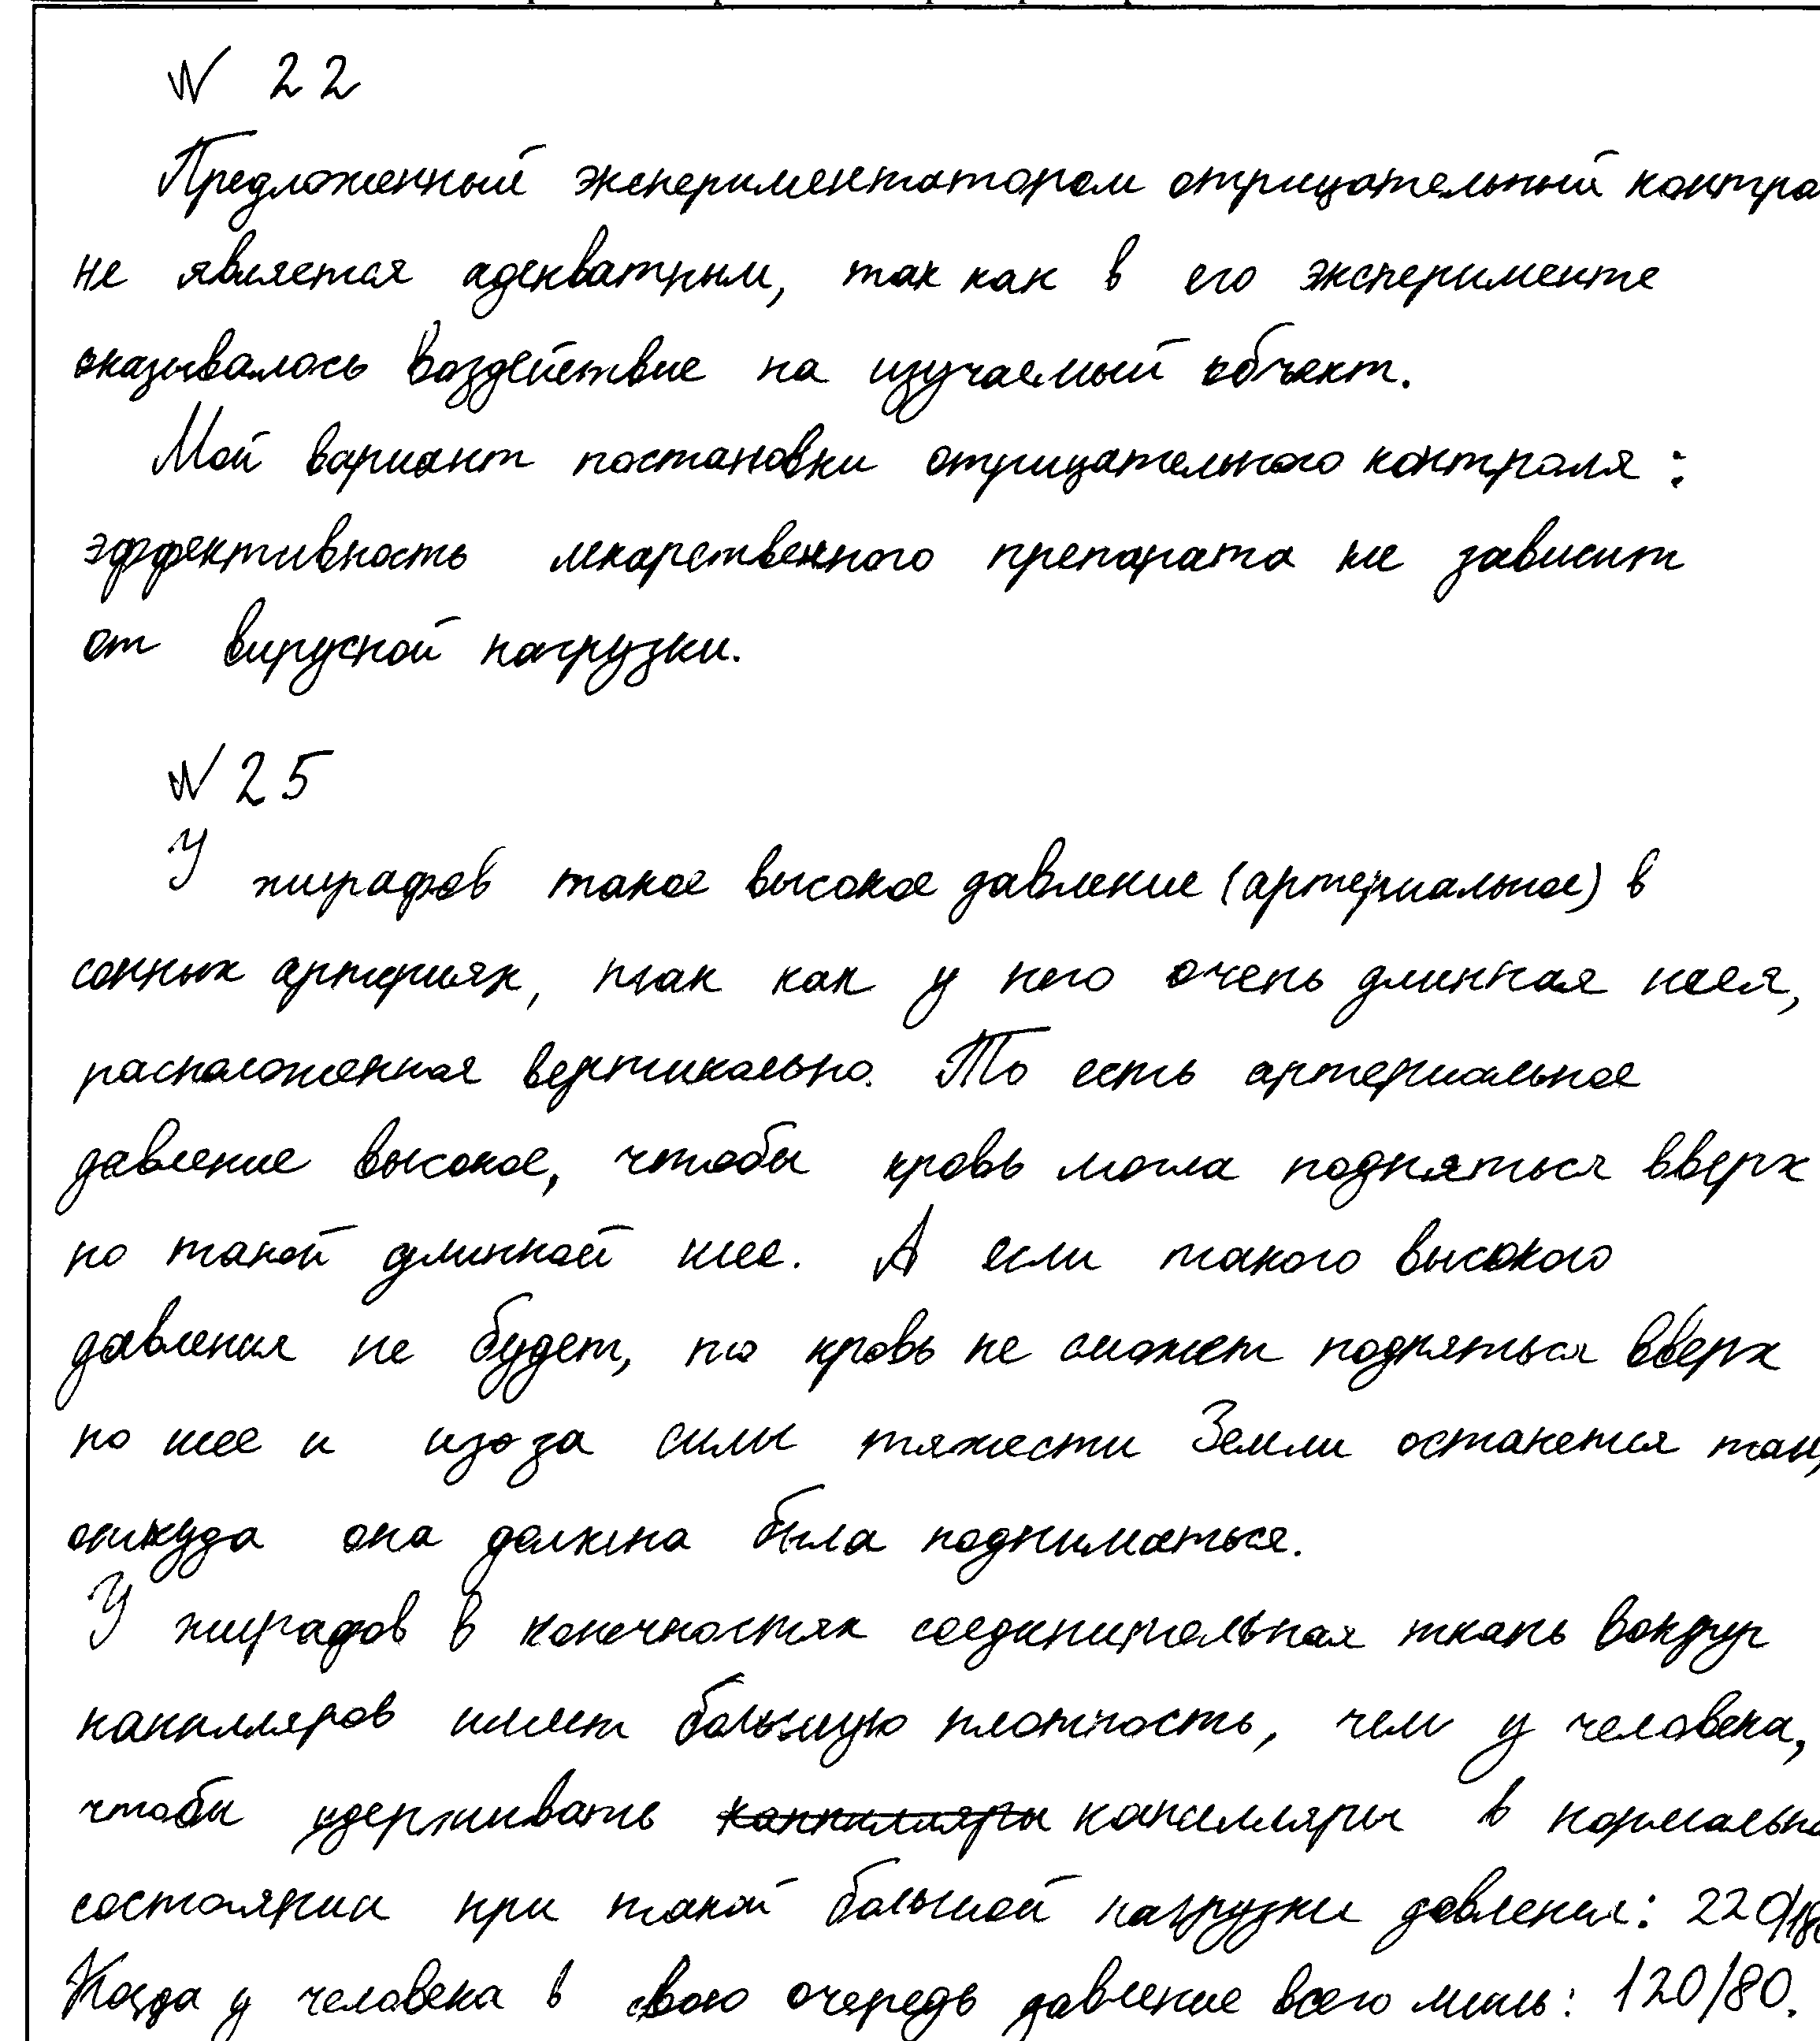 N 22
Предложенный экспериментатором отрицательный контро
не является адекватным, так как в его эксперименте
оказывалось воздействие на изучаемый объект.
Мой вариант постановки отрицательного контроля:
эффективность лекарственного препарата не зависит
от вирусной нагрузки.
N 25
У жирафов такое высокое давление (артериальное) в
сонных артериях, так как у него очень длинная шея,
расположенная вертикально. То есть артериальное
давление высокое, чтобы кровь могла подняться вверх
по такой длинной шее. А если такого высокого
давления не будет, то кровь не сможет подняться вверх
по шее и из-за силы тяжести Земли останется там,
откуда она должна была подниматься.
У жирафов в конечностях соединительная ткань вокруг
капилляров имеет большую плотность, чем у человека,
чтобы удерживать каппилляры капилляры в нормально
состоянии при такой большой нагрузки давления: 220/180
Когда у человека в свою очередь давление всего лишь: 120/80.